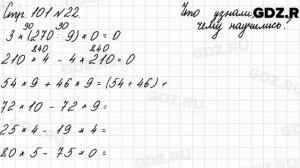 Стр 101 №22.
Что узнали,
чему научились?
GDZ.R
30 30
3 × (270 : 9) × 0 = 0
840 840
210 × 4 - 4 × 210 = 0
54 × 9 + 46 × 9 = (54 + 46) ×
72 × 10 - 72 × 9 =
25 × 4 - 19 × 4 =
80 × 5 - 75 × 0 =